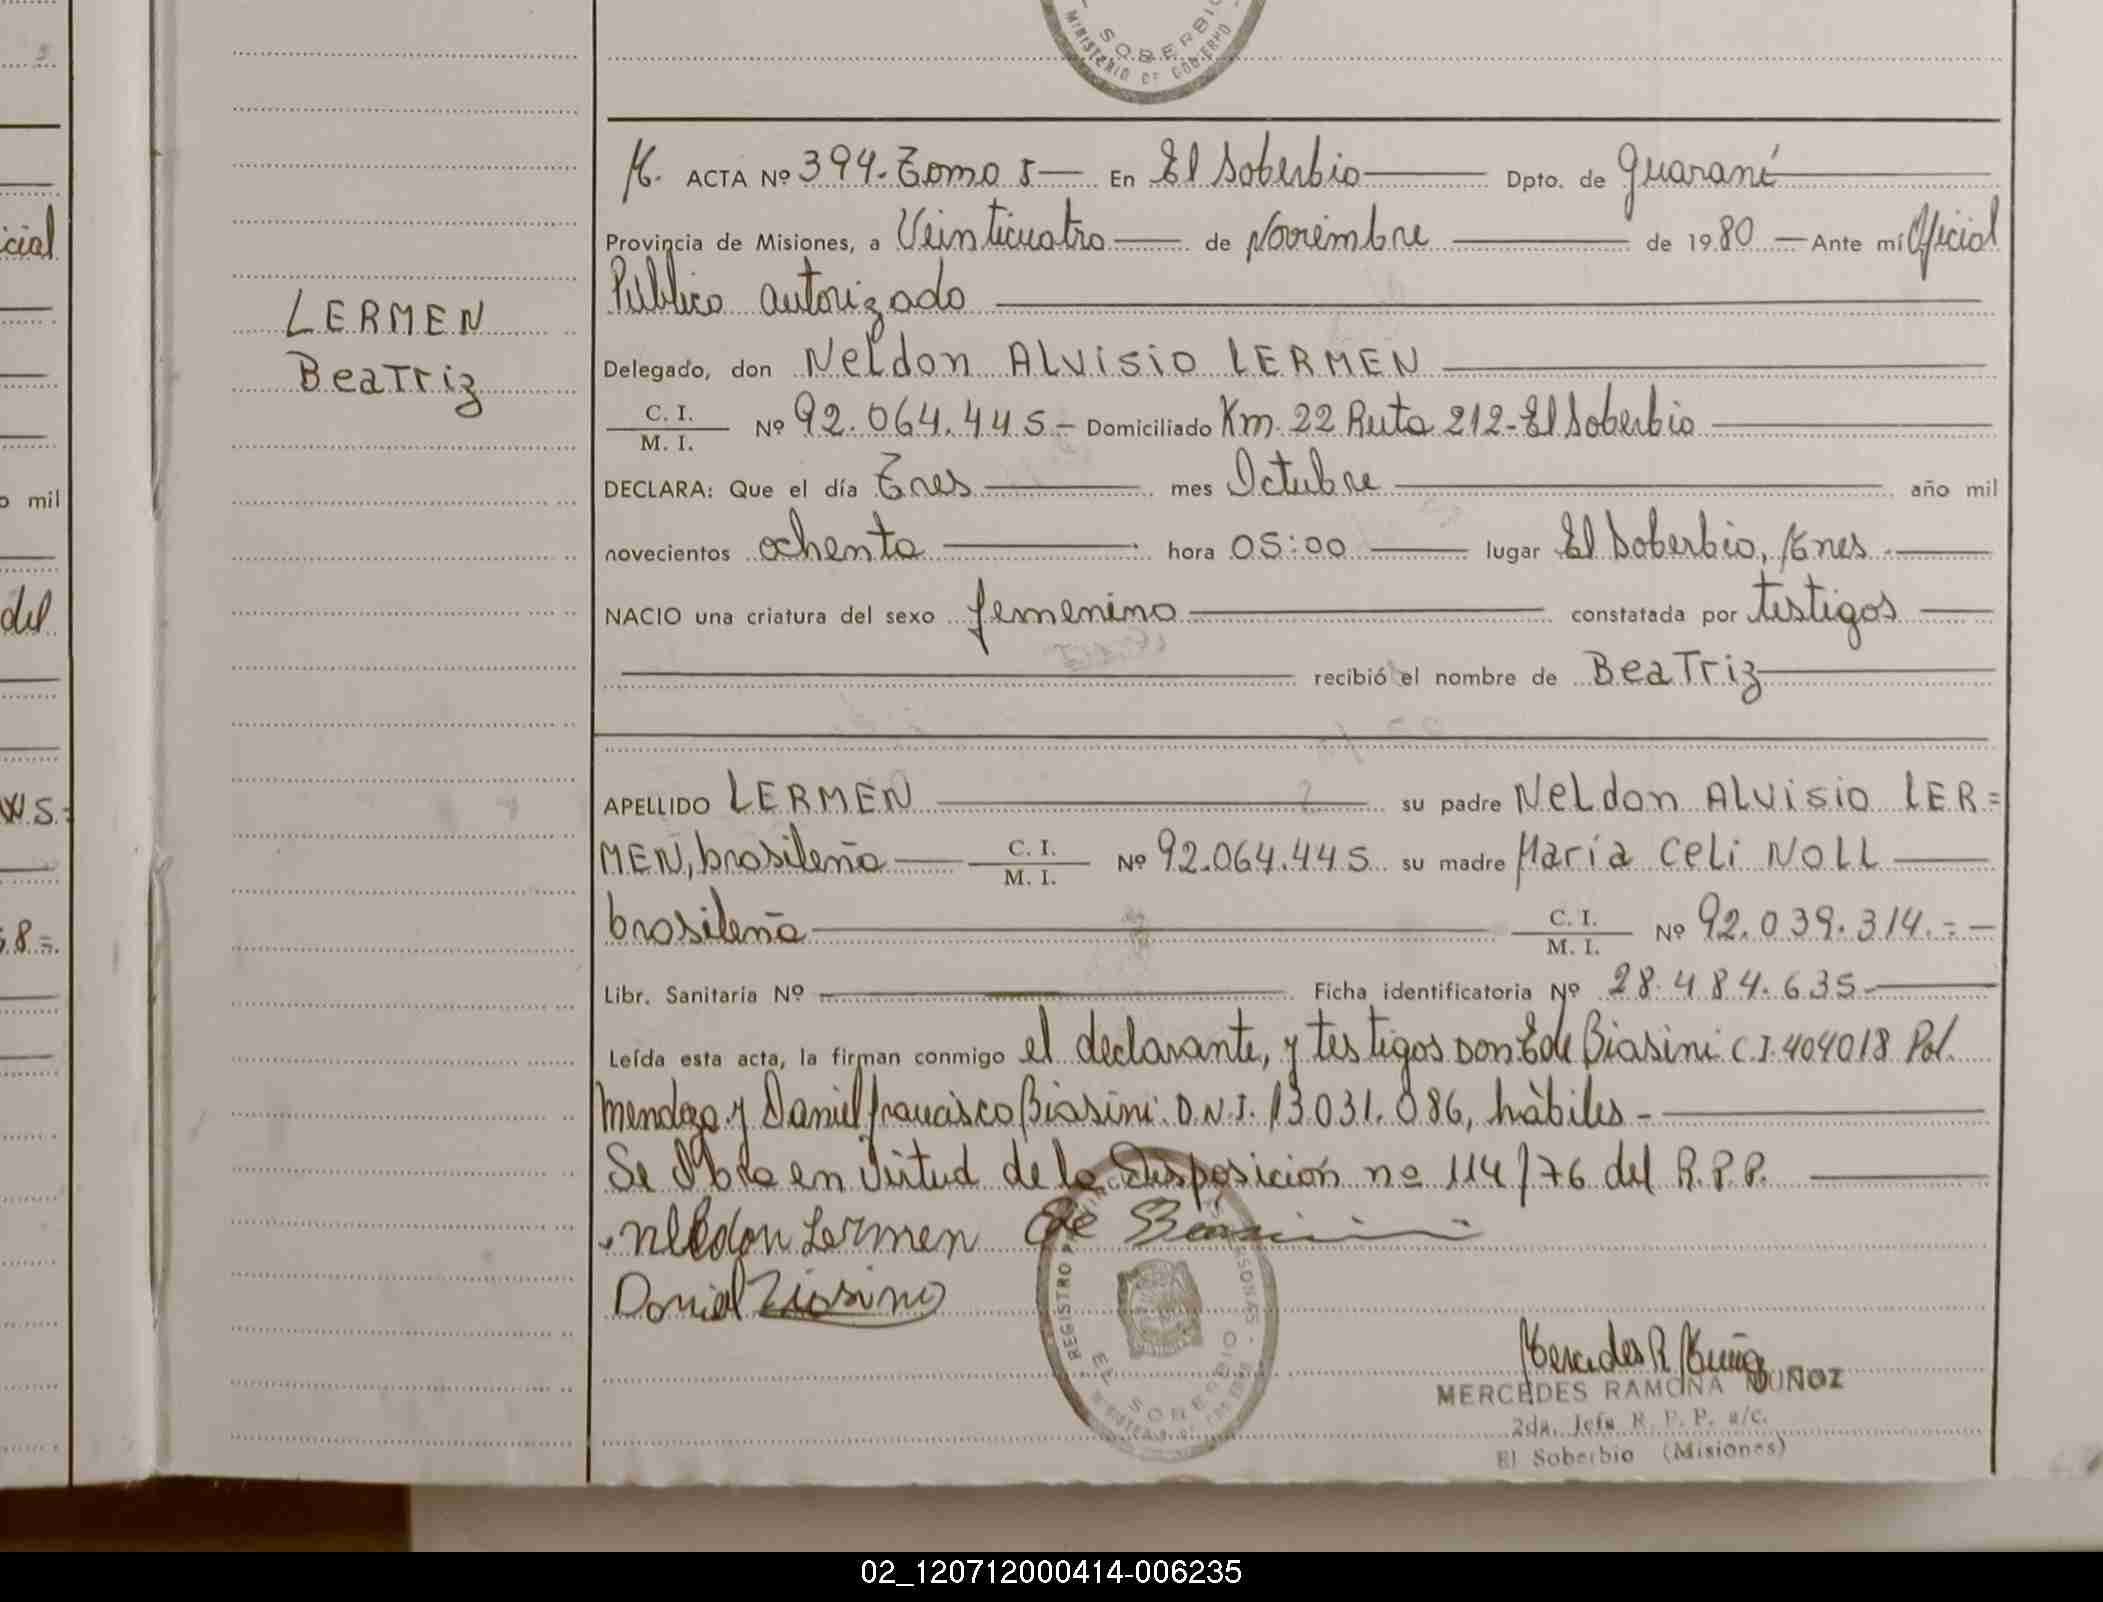 SOBERBIO
MINISTERIO DE GOBIERNO
LERMEN
Beatriz
M. ACTA Nº 394-Tomo 5 En El Soberbio Dpto. de Guaraní
Provincia de Misiones, a Veinticuatro de Noviembre de 1980 Ante mí Oficial
Público autorizado
Delegado, don Neldon Alvisio LERMEN
C. I. / M. I. Nº 92.064.445 - Domiciliado Km. 22 Ruta 212-El Soberbio
DECLARA: Que el día Tres mes Octubre año mil
novecientos ochenta hora 05:00 lugar El Soberbio, Mnes
NACIO una criatura del sexo femenino constatada por testigos
recibió el nombre de Beatriz
APELLIDO LERMEN su padre Neldon Alvisio LER=
MEN, brasileña C. I. / M. I. Nº 92.064.445 su madre María Celi NOLL
brasileña C. I. / M. I. Nº 92.039.314.=-
Libr. Sanitaria Nº Ficha identificatoria Nº 28.484.635
Leída esta acta, la firman conmigo el declarante, y testigos don Ede Biasini C.I. 404018 Pol.
Mendoza y Daniel francisco Biasini D.N.I. 13.031.086, hàbiles-
Se labra en virtud de la Disposición nº 114/76 del R.P.P.
Neldon Lermen Ede Biasini
Daniel Biasini
REGISTRO
PERSONAS
EL SOBERBIO
Mercedes R. Muñoz
MERCEDES RAMONA MUÑOZ
2da. Jefa R. P. P. a/c.
El Soberbio (Misiones)
icial
o mil
del
W.S.=
8=
02_120712000414-006235